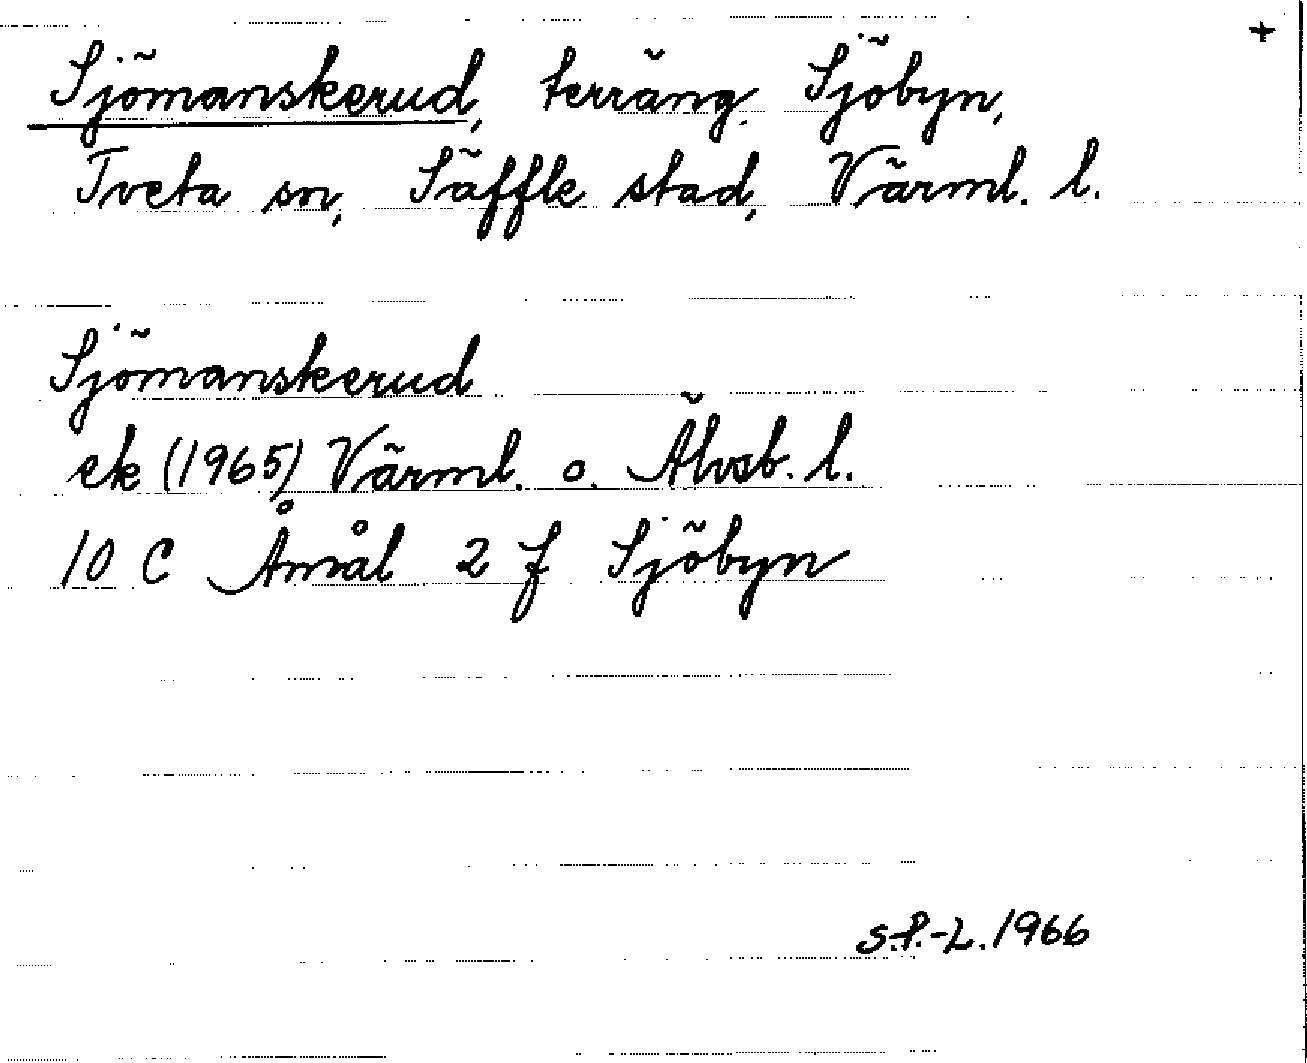 +
Sjömanskerud, terräng. Sjöbyn,
Tveta sn, Säffle stad, Värml. l.
Sjömanskerud
ek (1965) Värml. o. Älvsb. l.
10 C Åmål 2 f Sjöbyn
S.F.-L. 1966